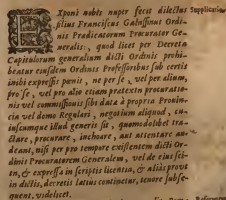 EXponi nobis nuper fecit dilectus
filius Franciscus Galassinus Ordi-
nis Prædicatorum Procurator Ge-
neralis, quod licet per Decreta
Capitulorum generalium dicti Ordinis prohi-
beatur eiusdem Ordinis Professoribus sub certis
inibi expressis pœnis, ne per se, vel per alium,
pro se, vel pro alio etiam prætextu procuratio-
nis vel commissionis sibi data à propria Prouin-
cia vel domo Regulari, negotium aliquod, cu-
iuscumque illud generis sit, quomodolibet tra-
ctare, procurare, inchoare, aut attentare au-
deant, nisi per pro tempore existentem dicti Or-
dinis Procuratorem Generalem, vel de eius sci-
tu, & expressa in scriptis licentia, & aliàs prout
in dictis decretis latius continetur, tenore subse-
quenti, videlicet.
Supplicatio